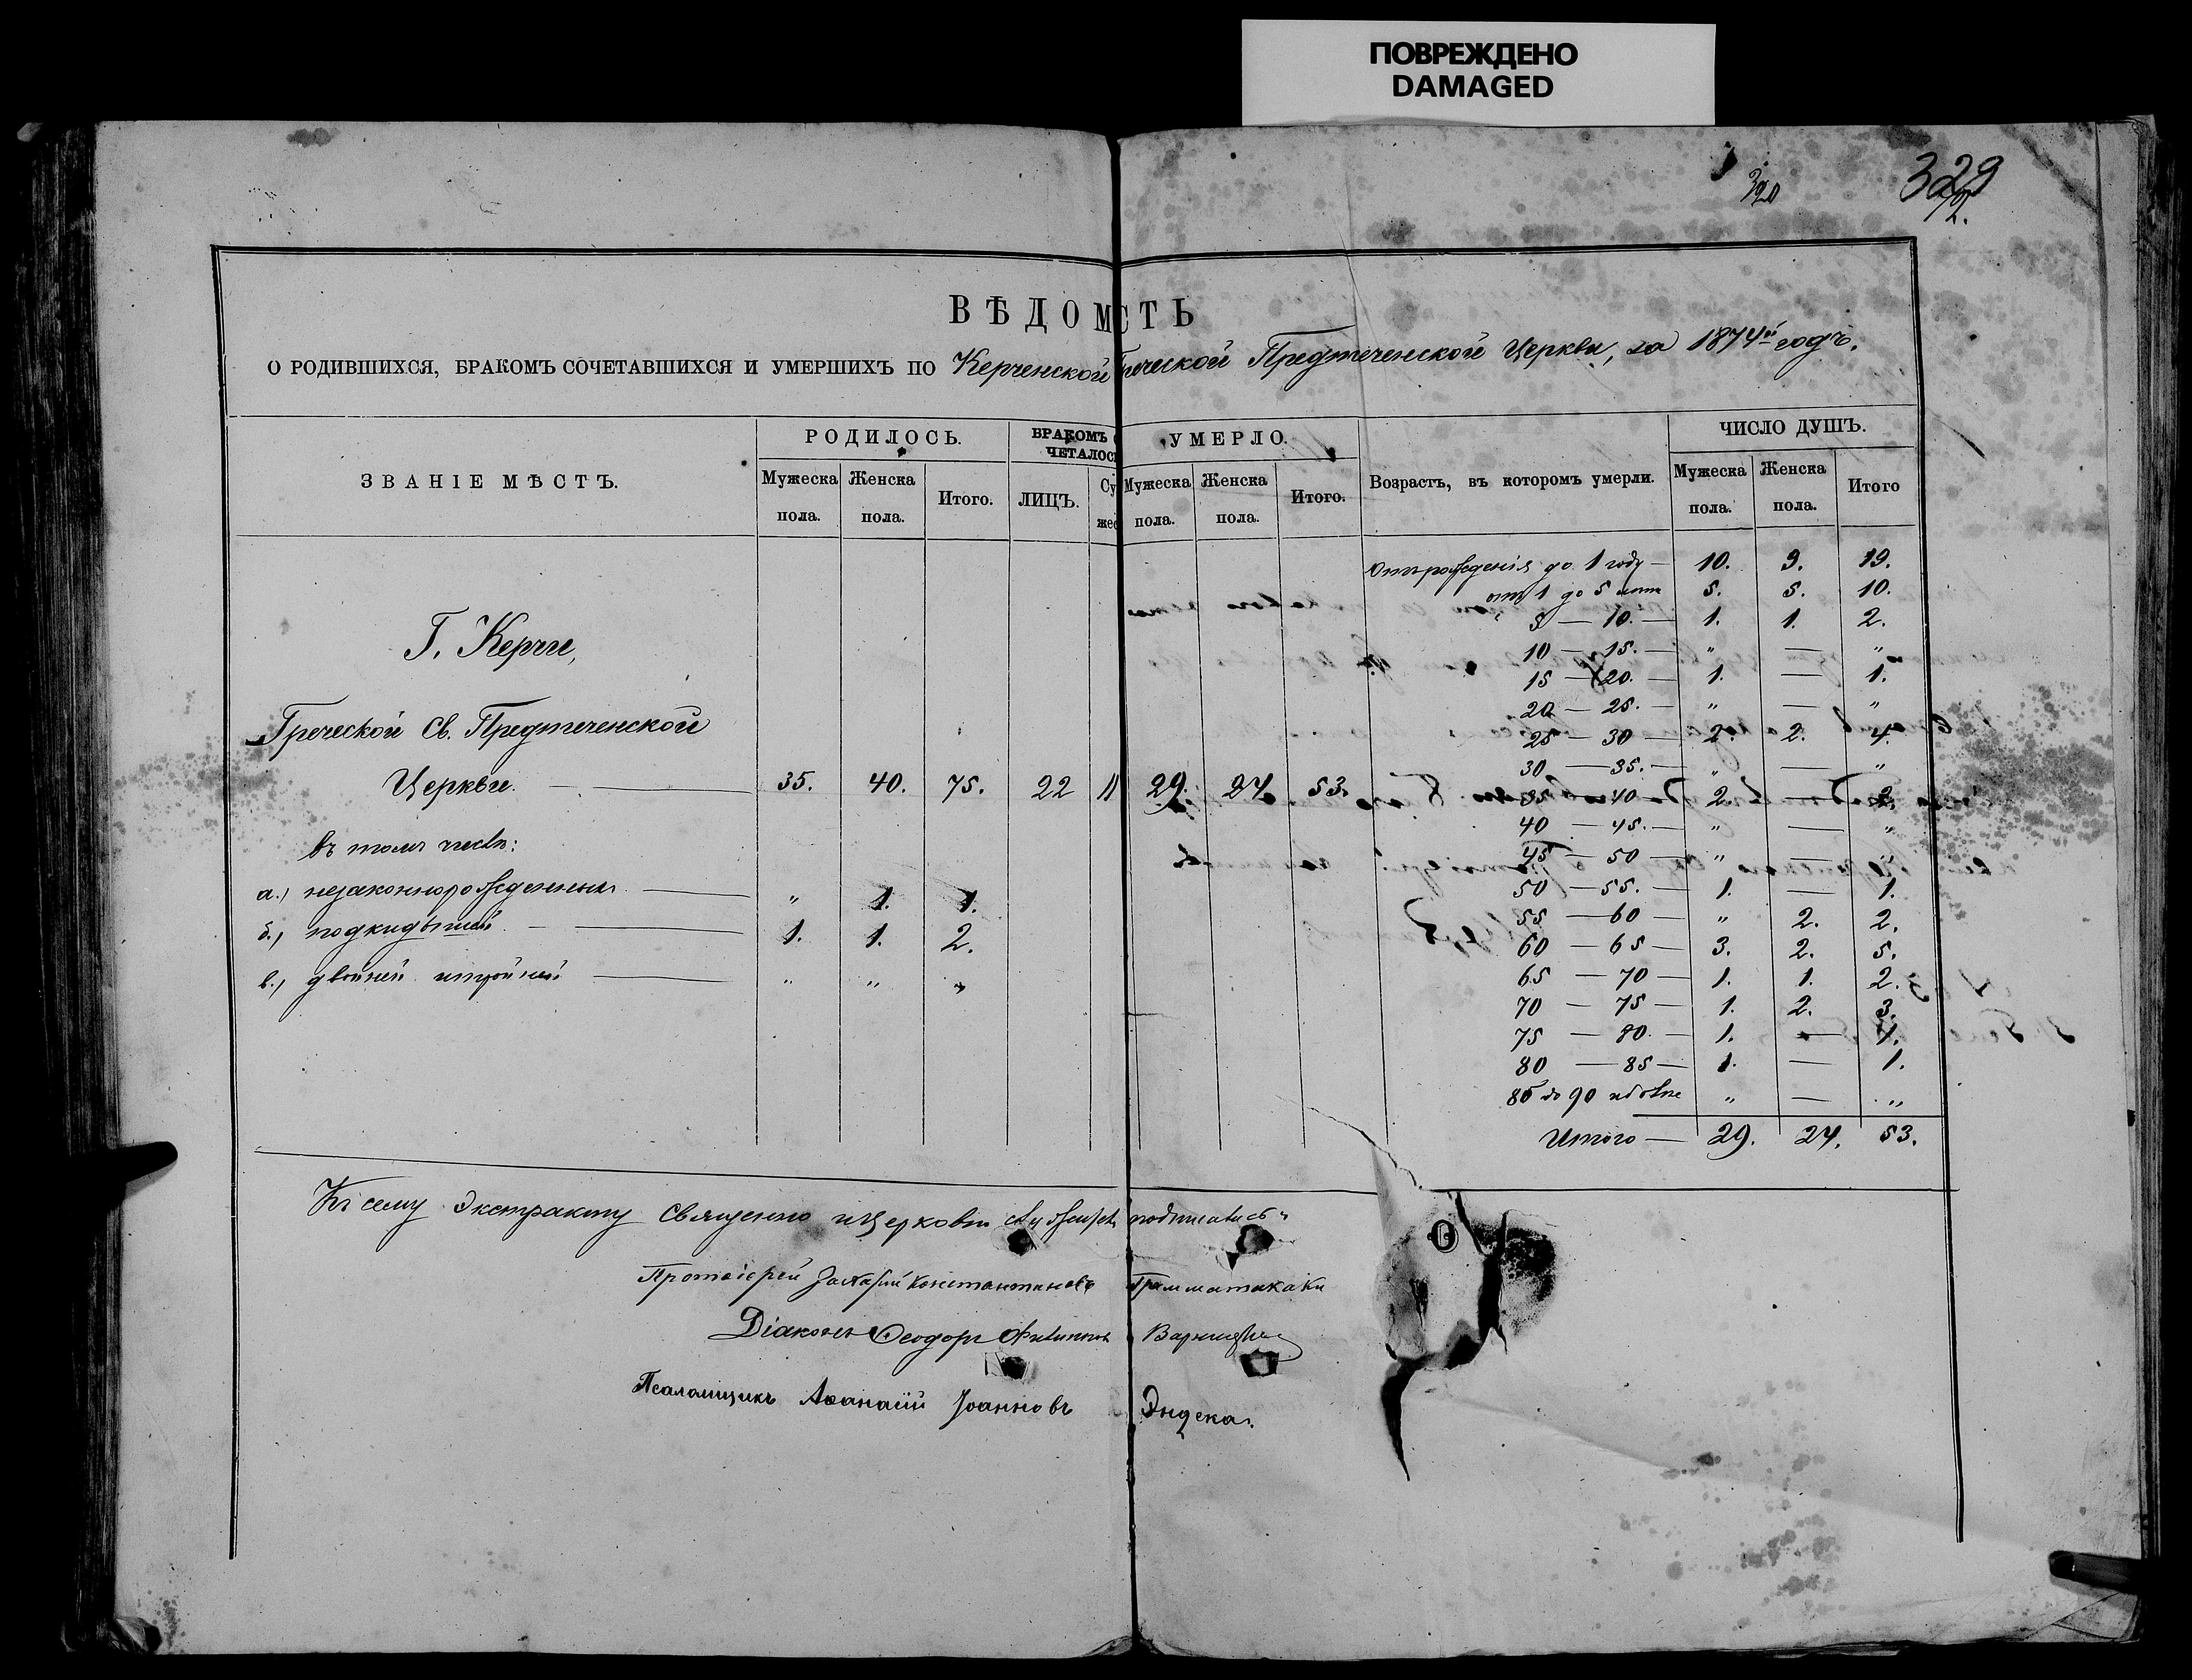 ПОВРЕЖДЕНО
DAMAGED
329
ВѢДОМСТЬ
О РОДИВШИХСЯ, БРАКОМЪ СОЧЕТАВШИХСЯ И УМЕРШИХЪ ПО Керченской Греческой Предтеченской Церкви, за 1874й годъ.
ЗВАНІЕ МѢСТЪ.
РОДИЛОСЬ.
Мужеска пола.
Женска пола.
Итого.
БРАКОМЪ
ЧЕТАЛОС
ЛИЦЪ.
Су
жес
УМЕРЛО.
Мужеска пола.
Женска пола.
Итого.
Возрастъ, въ которомъ умерли.
ЧИСЛО ДУШЪ.
Мужеска пола.
Женска пола.
Итого
Г. Керчи,
Греческой Св. Предтеченской
Церкви. — 35. 40. 75. 22 11 29. 24 53.
въ томъ числѣ:
а.) незаконнорожденныхъ — „ 1. 1.
б.) подкидышей — 1. 1. 2.
в.) двойней и тройней — „ „ „
Отъ рожденія до 1 году — 10. 9. 19.
отъ 1 до 5 лѣтъ 5. 5. 10.
5 — 10. — 1. 1. 2.
10 — 15. — „ — „
15 — 20. — 1. — 1.
20 — 25. — „ — „
25 — 30 — 2. 2. 4.
30 — 35. — „ — „
35 — 40 — 2. — 2.
40 — 45. — „ — „
45 — 50 — „ — „
50 — 55. — 1. — 1.
55 — 60 — „ 2. 2.
60 — 65 — 3. 2. 5.
65 — 70 — 1. 1. 2.
70 — 75 — 1. 2. 3.
75 — 80. — 1. — 1.
80 — 85 — 1. — 1.
85 до 90 и болѣе „ — „
Итого — 29. 24. 53.
Къ сему Экстракту Священно и Церковно служители подписались:
Протоіерей Захарій Константиновъ Грамматикаки
Діаконъ Ѳеодоръ Филиппов
Псаломщикъ Аѳанасій Іоанновъ Эндека.